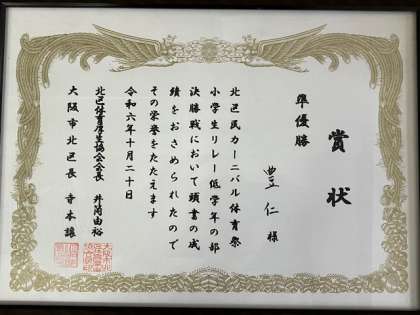 賞状
準優勝
豊仁様
北区民カーニバル体育祭
小学生リレー低学年の部
決勝戦において頭書の成
績をおさめられたので
その栄誉をたたえます
令和六年十月二十日
北区体育厚生協会会長 井筒由裕
大阪市北区長 寺本譲